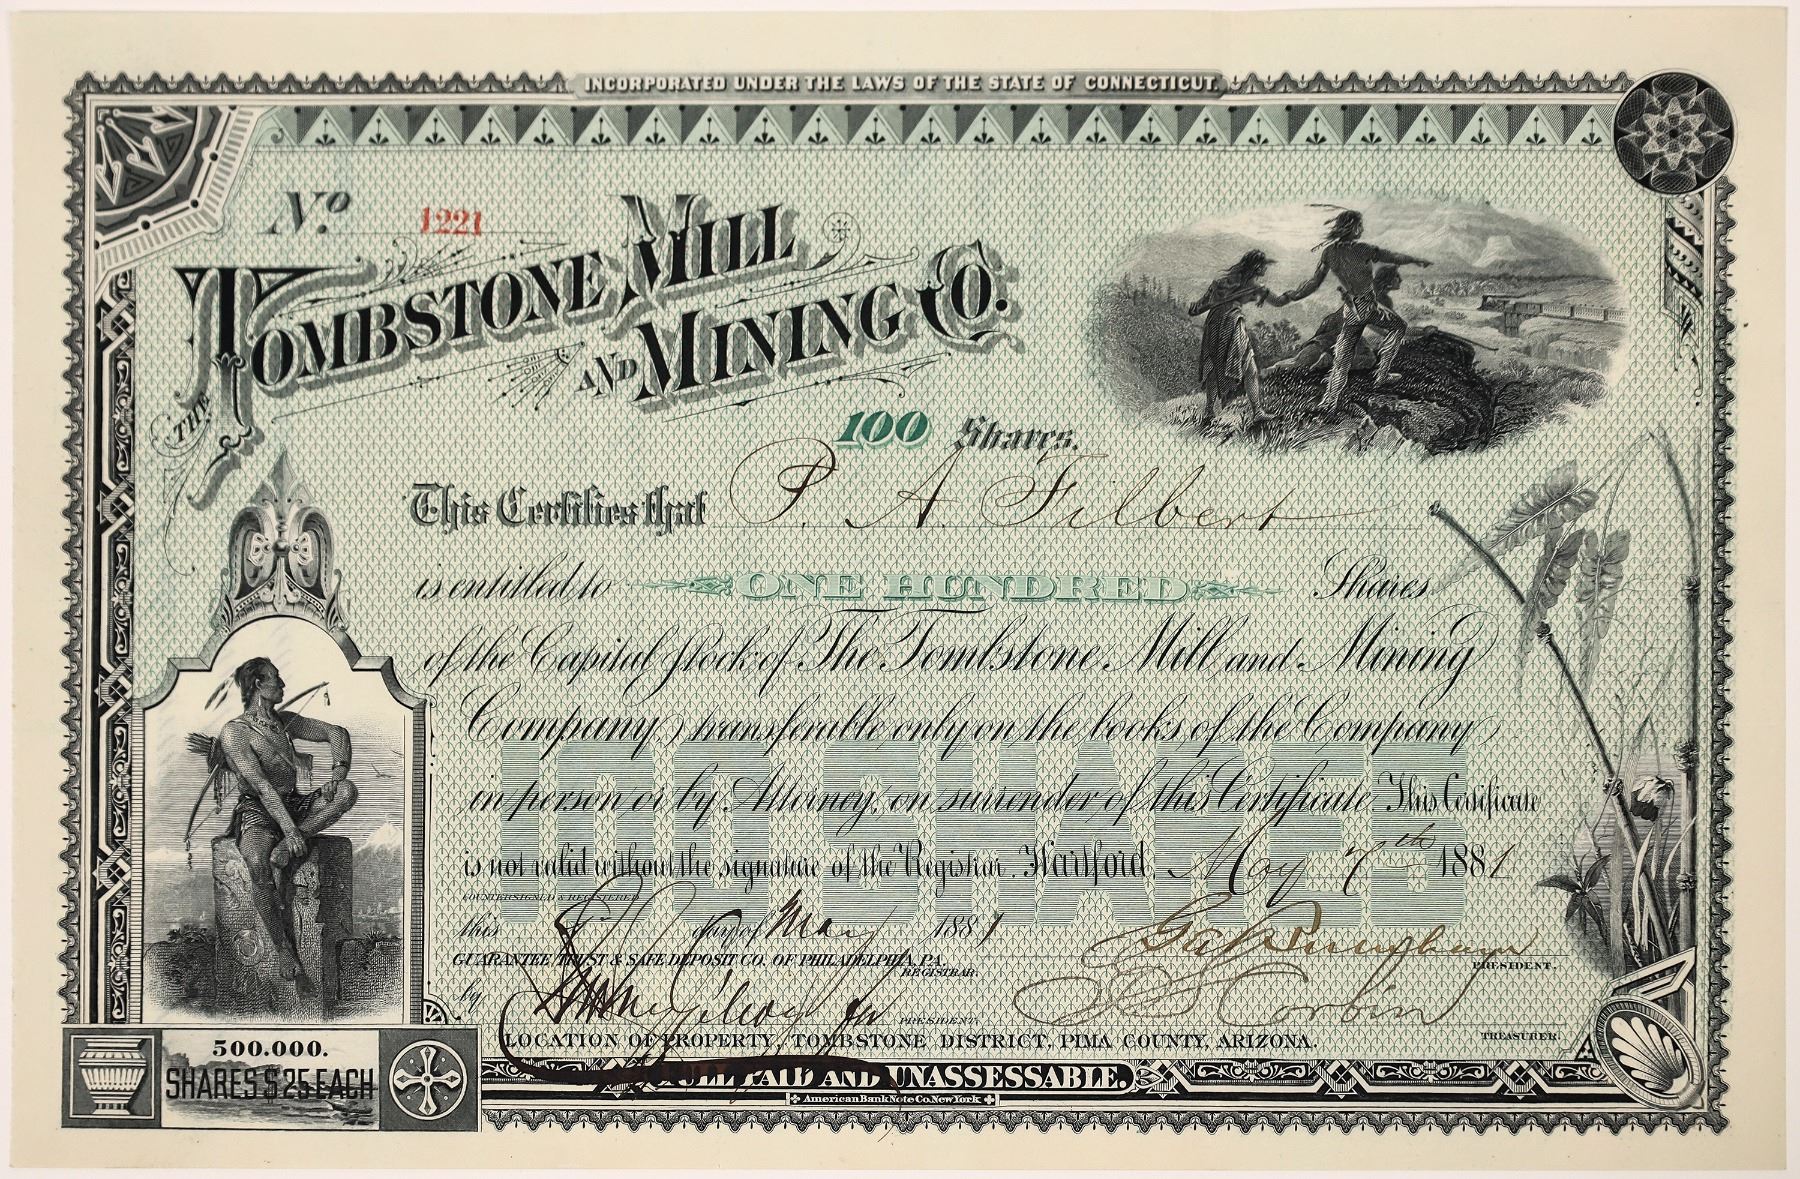 INCORPORATED UNDER THE LAWS OF THE STATE OF CONNECTICUT.
No. 1221
THE TOMBSTONE MILL
AND MINING CO.
100 Shares.
This Certifies that P. A. Filbert
is entitled to ONE HUNDRED Shares
of the Capital Stock of The Tombstone Mill and Mining
Company, transferable only on the books of the Company
in person or by Attorney, on surrender of this Certificate. This Certificate
is not valid without the signature of the Registrar. Hartford, May 7th 1881
100 SHARES
COUNTERSIGNED & REGISTERED
this day of May 1881
GUARANTEE TRUST & SAFE DEPOSIT CO. OF PHILADELPHIA, PA.
REGISTRAR.
PRESIDENT.
by PRESIDENT.
Corbin
TREASURER.
LOCATION OF PROPERTY, TOMBSTONE DISTRICT, PIMA COUNTY, ARIZONA.
500.000.
SHARES $25 EACH
FULL PAID AND UNASSESSABLE.
American Bank Note Co. New York